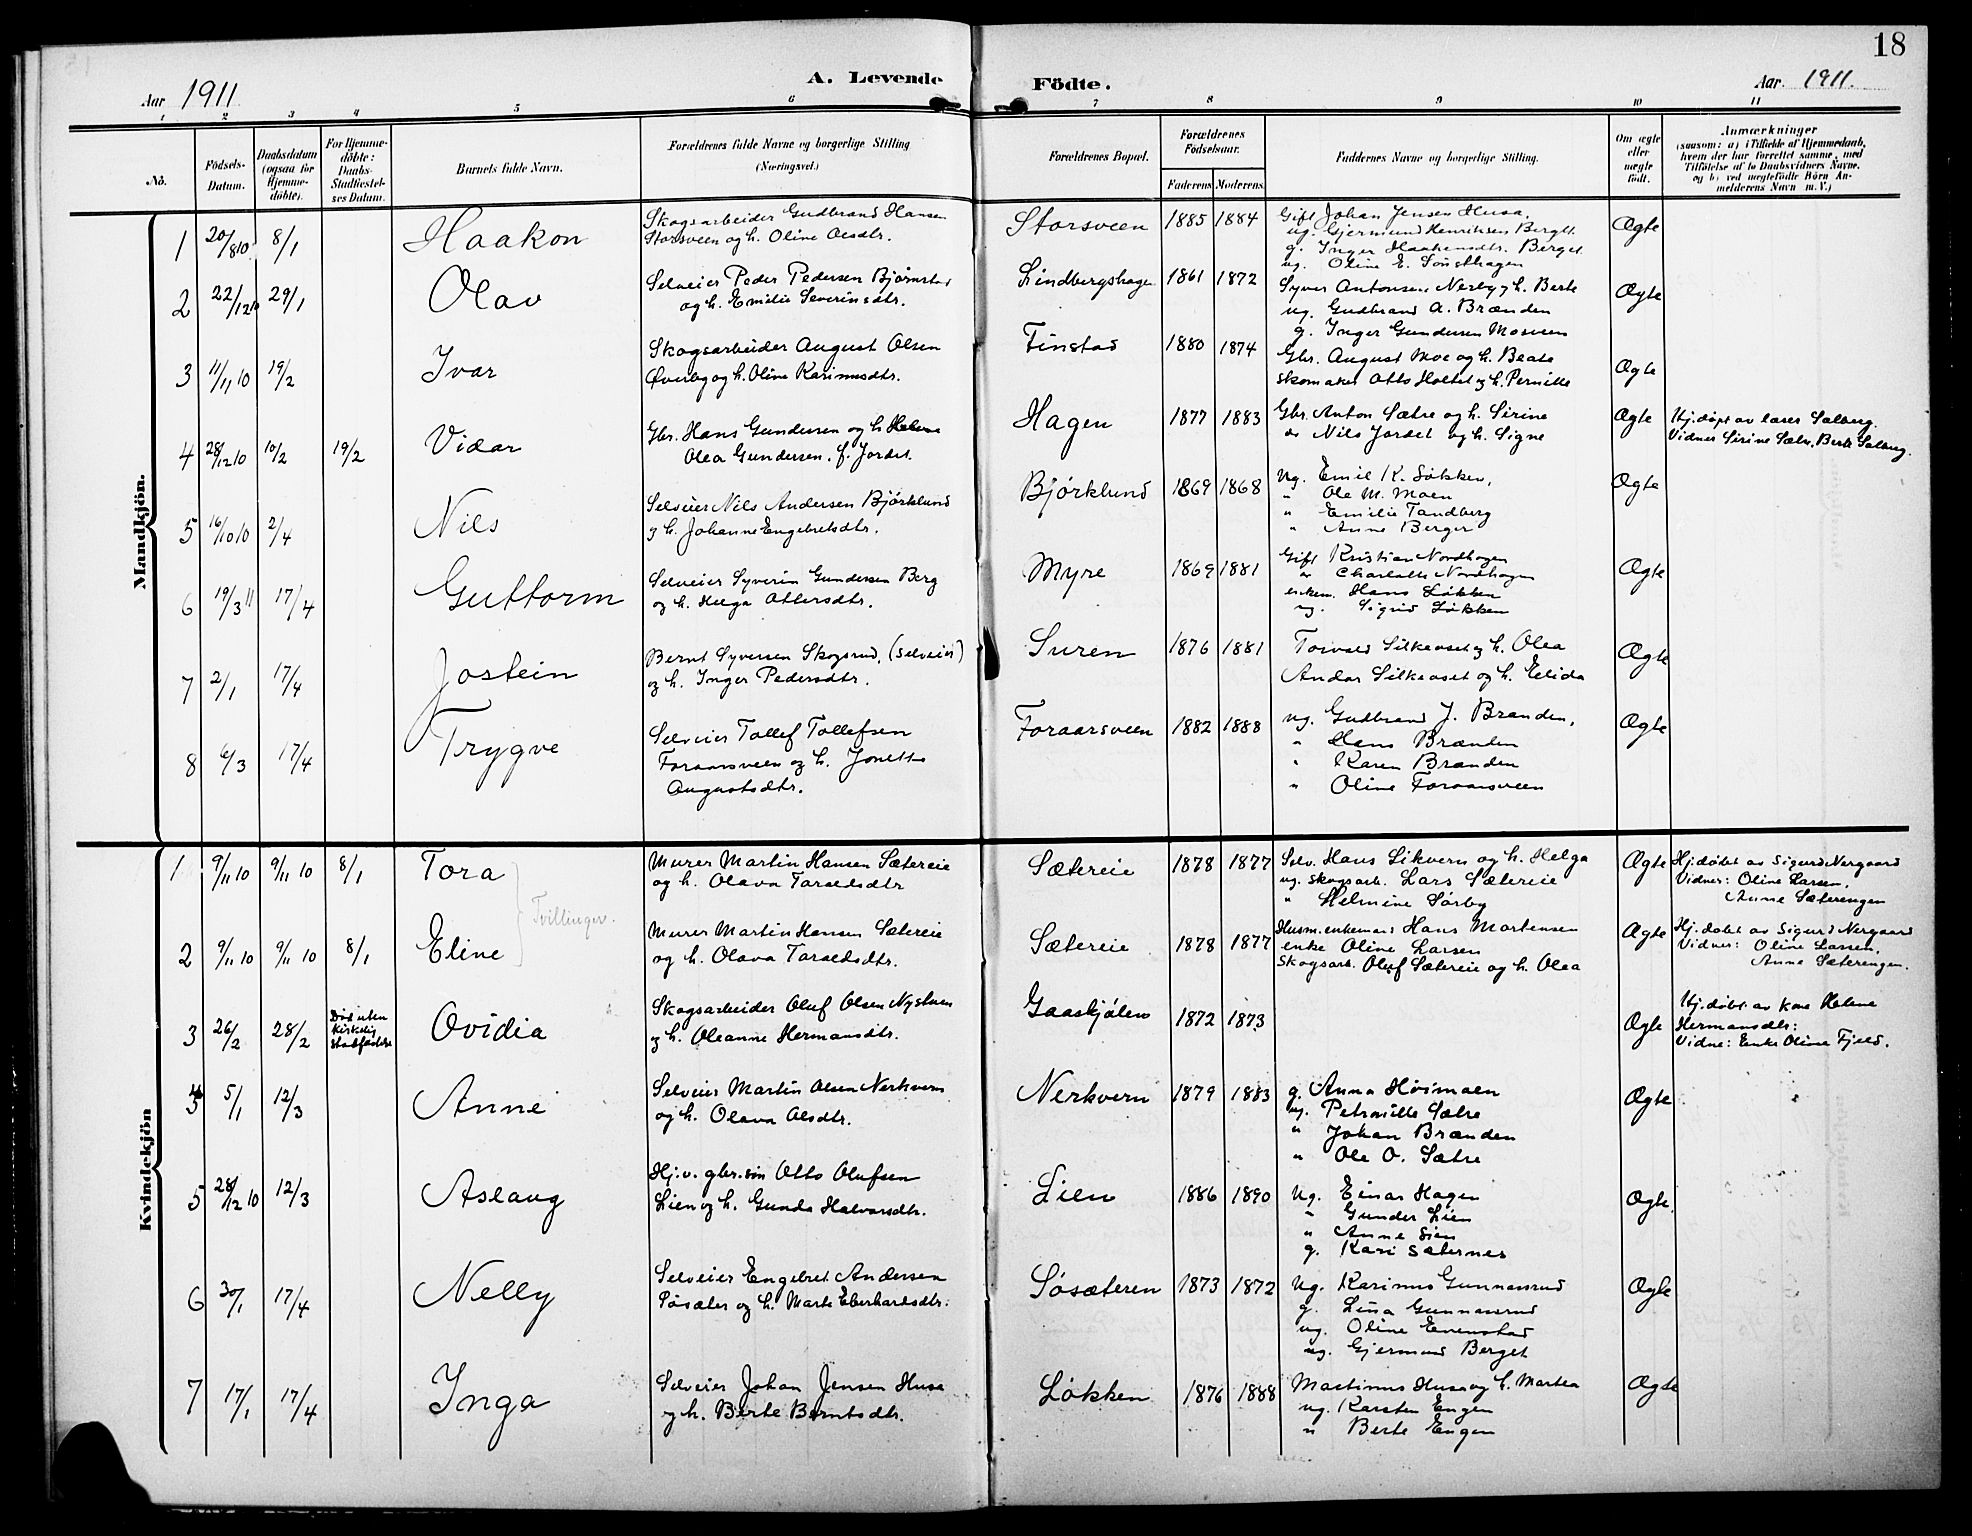 18
A. Levende Födte.
Aar 1911
Aar 1911.
1 2 3 4 5 6 7 8 9 10 11
No.
Födsels-Datum.
Daabsdatum (ogsaa for Hjemme-döbte).
For Hjemme-döbte: Daabs-Stadfæstel-ses Datum.
Barnets fulde Navn.
Forældrenes fulde Navne og borgerlige Stilling (Næringsvei.)
Forældrenes Bopæl.
Forældrenes Födselsaar.
Faderens Moderens
Faddernes Navne og borgerlige Stilling.
Om ægte eller uægte födt.
Anmærkninger
(saasom: a) i Tilfælde af Hjemmedaab, hvem der har forrettet samme, med Tilföielse af to Daabsvidners Navne, og b) ved uægtefödte Börn Anmelderens Navn m. V.)
Mandkjön.
1 20/8 10 8/1 Haakon
Skogsarbeider Gudbrand Hansen
Storsveen og h. Oline Olsdtr.
Storsveen 1885 1884
Gift Johan Jensen Husa,
ug. Gjermund Henriksen Berget
g. Inger Haakensdtr. Berget
ug. Oline E. Sønsthagen
Ægte
2 22/12 10 29/1 Olav
Selveier Peder Pedersen Bjørnstad
og h. Emilie Severinsdtr.
Lindbergshagen 1861 1872
Syver Antonsen Nerby og h. Berte
ug. Gudbrand A. Brænden
g. Inger Gundersen Moseen
Ægte
3 11/11 10 19/2 Ivar
Skogsarbeider August Olsen
Øverby og h. Oline Karinusdtr.
Finstad 1880 1874
Gbr. August Moe og h. Beate
Skomaker Otto Holtet og h. Pernille
Ægte
4 28/12 10 10/2 19/2 Vidar
Gbr. Hans Gundersen og h. Helene
Olea Gundersen, f. Jordet.
Hagen 1877 1883
Gbr. Anton Sætre og h. Sirine
do Nils Jordet og h. Signe
Ægte
Hj.døpt av lærer Solberg.
Vidner Sirine Sætre, Berte Solberg.
5 16/10 10 2/4 Nils
Selveier Nils Andersen Bjørklund
og h. Johanne Engebretsdtr.
Bjørklund 1869 1868
Ug. Emil K. Løkken,
" Ole M. Moen
" Emilie Tandberg
" Anne Berger
Ægte
6 19/3 11 17/4 Guttorm
Selveier Syverin Gundersen Berg
og h. Helga Ottersdtr.
Myre 1869 1881
Gift Kristian Nordhagen
" Charlotte Nordhagen
enkem. Hans Løkken
ug. Sigrid Løkken
Ægte
7 2/1 17/4 Jostein
Bernt Syversen Skogsrud, (selveier)
og h. Inger Pedersdtr.
Suren 1876 1881
Torvald Silkeoset og h. Olea
Andor Silkeoset og h. Elida
Ægte
8 6/3 17/4 Trygve
Selveier Tollef Tollefsen
Foraarsveen og h. Jonette
Augustsdtr.
Foraarsveen 1882 1888
ug. Gudbrand J. Brænden,
" Hans Brænden
" Karen Brænden
" Oline Foraarsveen
Ægte
Kvindekjön
1 9/11 10 9/11 10 8/1 Tora
Tvillinger.
Murer Martin Hansen Sætereie
og h. Olava Taraldsdtr
Sætereie 1878 1877
Selv. Hans Likvern og h. Helga
ug. skogsarb. Lars Sætereie
" Helmine Sørby
Ægte
Hj.døbt av Sigurd Nergaard
Vidner: Oline Larsen,
Anne Sæterengen
2 9/11 10 9/11 10 8/1 Eline
Murer Martin Hansen Sætereie
og h. Olava Taraldsdtr.
Sætereie 1878 1877
Husm. enkeman: Hans Mortensen
enke Oline Larsen
Skogsarb. Oluf Sætereie og h. Olea
Ægte
Hj.døbt av Sigurd Nergaard
Vidner: Oline Larsen,
Anne Sæterengen.
3 26/2 28/2
Død uten kirkelig stadfæstelse
Ovidia
Skogsarbeider Oluf Olsen Nystuen
og h. Oleanne Hermansdtr.
Gaaskjølen 1872 1873
Ægte
Hj.døbt av kone Helene
Hermansdtr:
Vidne: Enke Oline Fjeld.
4 5/1 12/3 Anne
Selveier Martin Olsen Nerkvern
og h. Olava Olsdtr.
Nerkvern 1879 1883
g. Anna Høismoen
ug. Petronille Sætre
" Johan Brænden
" Ole O. Sætre
Ægte
5 28/12 10 12/3 Aslaug
Hj.v. gbr.søn Otto Olufsen
Lien og h. Gunda Halvorsdtr.
Lien 1886 1890
Ug. Einar Hagen
" Gunder Lien
" Anne Lien
g. Kari Sæternes
Ægte
6 30/1 17/4 Nelly
Selveier Engebret Andersen
Søsæter og h. Marte Eberhardsdtr.
Søsæteren 1873 1872
Ug. Karinus Gunnarsrud
g. Lina Gunnarsrud
ug. Oline Evenstad
ug. Gjermund Berget
Ægte
7 17/1 17/4 Inga
Selveier Johan Jensen Husa
og h. Berte Berntsdtr.
Løkken 1876 1888
Martinus Husa og h. Martea
ug. Karsten Engen
" Berte Engen
Ægte